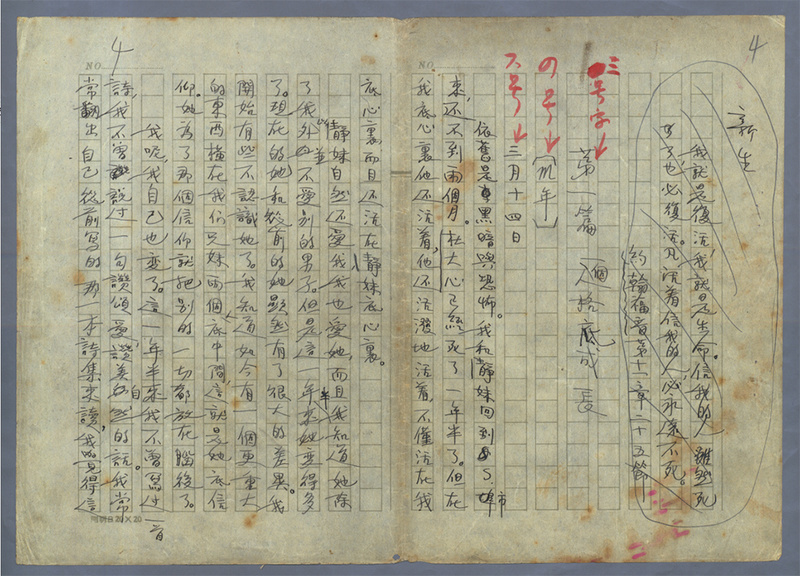 4
新生
我就是復活,我就是生命。信我的人,雖然死
了也必復活。凡活着信我的人,必永遠不死。
約翰福音第十一章二十五節
三号字↓
第一篇 一個人格底成長
の号↓
〔此年〕
六号↓
三月十四日
依舊是黑暗與恐怖。我和靜妹回到S.埠市
來,還不到兩個月。杜大心已經死了一年半了。但在
我底心裏他还活着,他还活潑地活着,不僅活在我
NO.
4
NO.
底心裏而且还活在靜妹底心裏。
靜妹自然还愛我,我也愛她,而且我知道她除
了我外並不愛別的男子。但是這一年半來她变得多
了。現在的她和從前的她顯然有了很大的差異。我
開始有些不認識她了。我知道如今有一個更重大
的東西橫在我們兄妹兩個底中間,這就是她底信
仰。她為了那個信仰就把別的一切都放在腦後了。
我呢,我自己也变了。這一年半來我不曾寫过一首
詩,我不曾說过一句讚頌愛,讚美自然的話。我常
常翻出自己從前寫的那一本詩集來讀,我覺得這
20×20